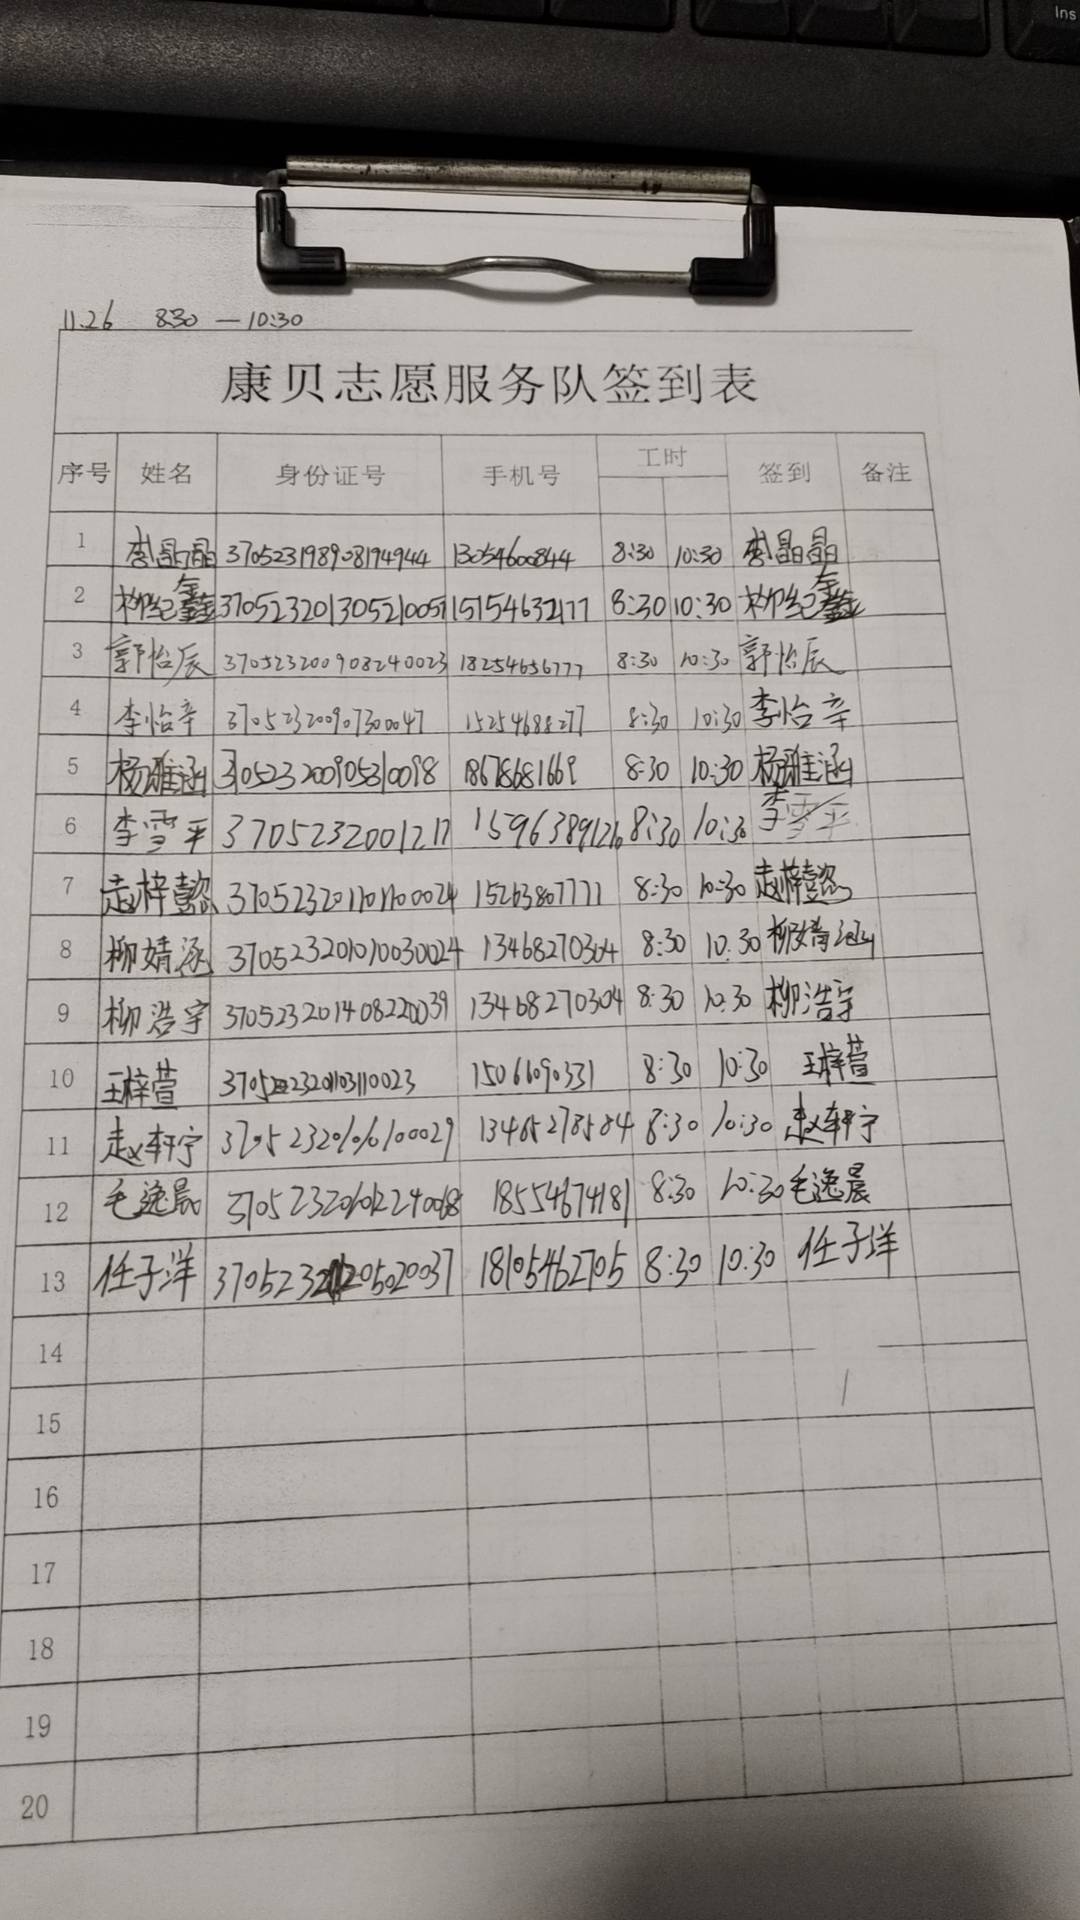 Ins
11.26 8:30 — 10:30
康贝志愿服务队签到表
序号 姓名 身份证号 手机号 工时 签到 备注
1 李晶晶 370523198908194944 13054600844 8:30 10:30 李晶晶
2 柳纪鑫 15154632177 8:30 10:30 柳纪鑫
3 郭怡辰 370523200908240023 18254656777 8:30 10:30 郭怡辰
4 李怡辛 370523200907300047 15254688277 8:30 10:30 李怡辛
5 杨雅涵 18678681669 8:30 10:30 杨雅涵
6 李雪平 3705232001217 15963891226 8:30 10:30 李雪平
7 赵梓懿 370523201101100024 15263807771 8:30 10:30 赵梓懿
8 柳婧涵 370523201010030024 13468270304 8:30 10:30 柳婧涵
9 柳浩宇 370523201408220039 13468270304 8:30 10:30 柳浩宇
10 王梓萱 15066090331 8:30 10:30 王梓萱
11 赵轩宁 13465278584 8:30 10:30 赵轩宁
12 毛逸晨 18554674181 8:30 10:30 毛逸晨
13 任子洋 18105462705 8:30 10:30 任子洋
14
15
16
17
18
19
20